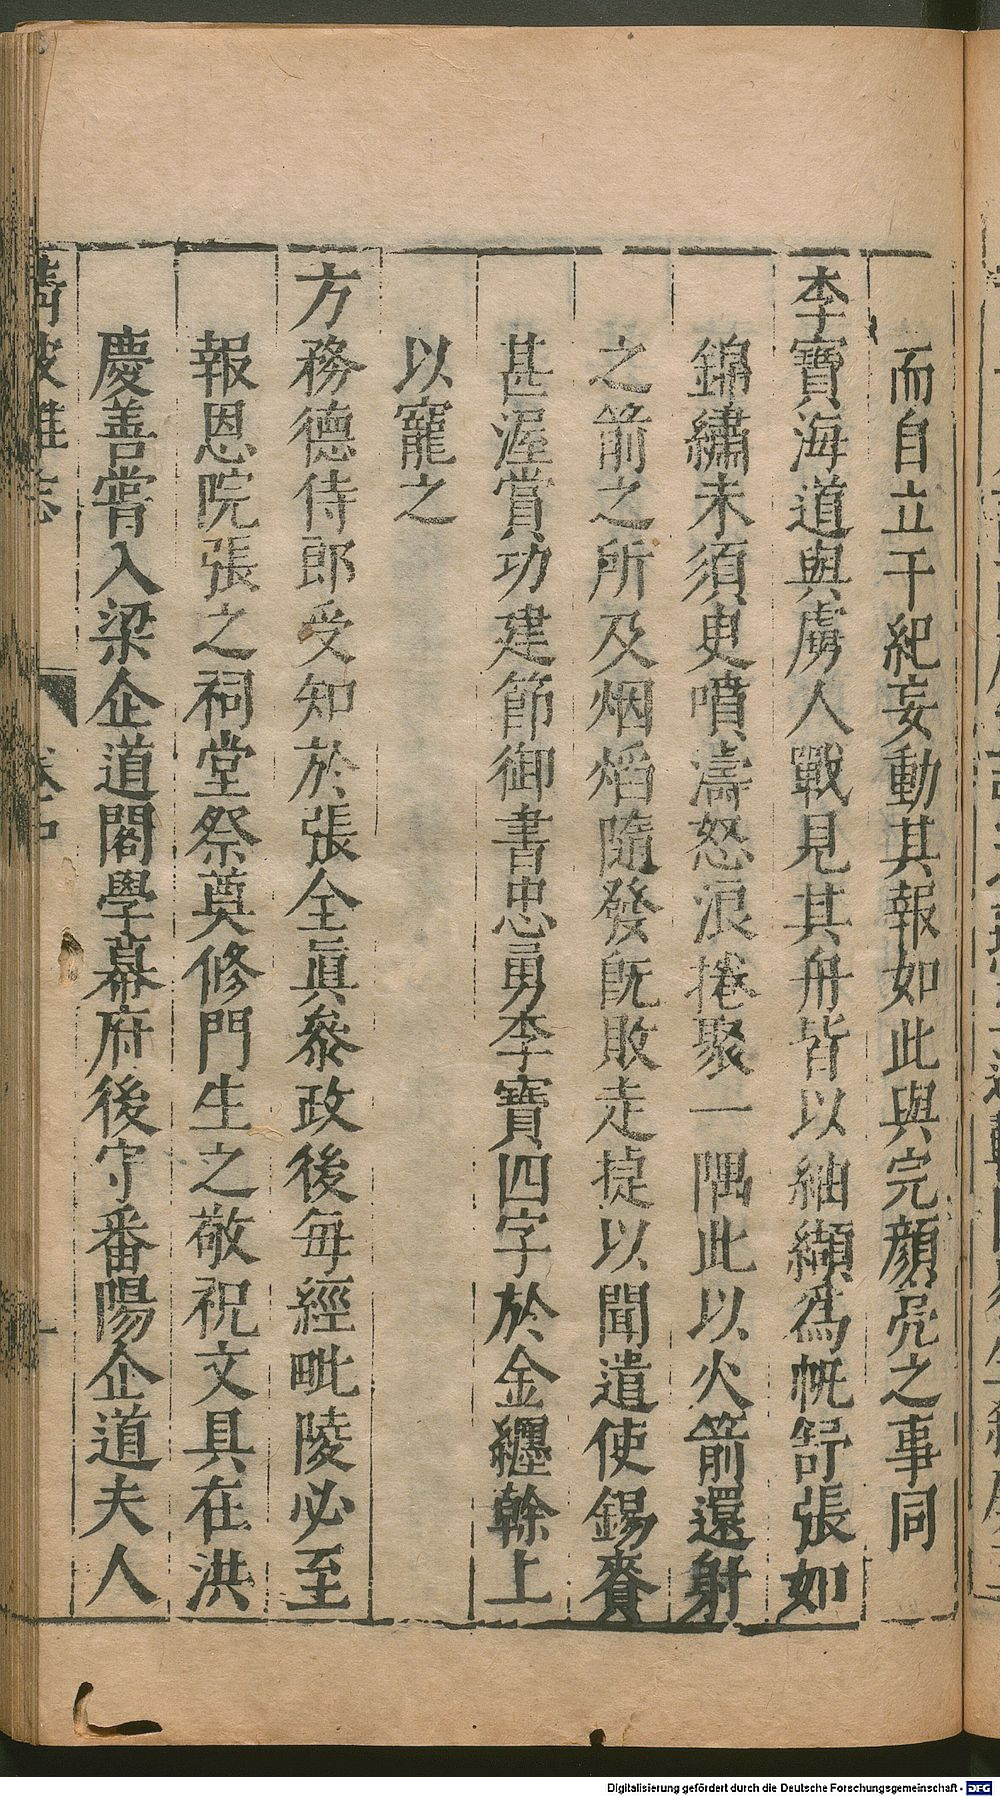 而自立干紀妄動其報如此與完顔亮之事同
李寶海道與虜人戰見其舟皆以紬纈爲帆舒張如
錦繡未須臾噴濤怒浪捲聚一隅此以火箭還射
之箭之所及烟焰隨發旣敗走㨗以聞遣使錫賚
甚渥賞功建節御書忠勇李寶四字於金纏幹上
以寵之
方務德侍郎受知於張全眞參政後每經毗陵必至
報恩院張之祠堂祭奠修門生之敬祝文具在洪
慶善嘗入梁企道閣學幕府後守番陽企道夫人
清波雜志
Digitalisierung gefördert durch die Deutsche Forschungsgemeinschaft - DFG